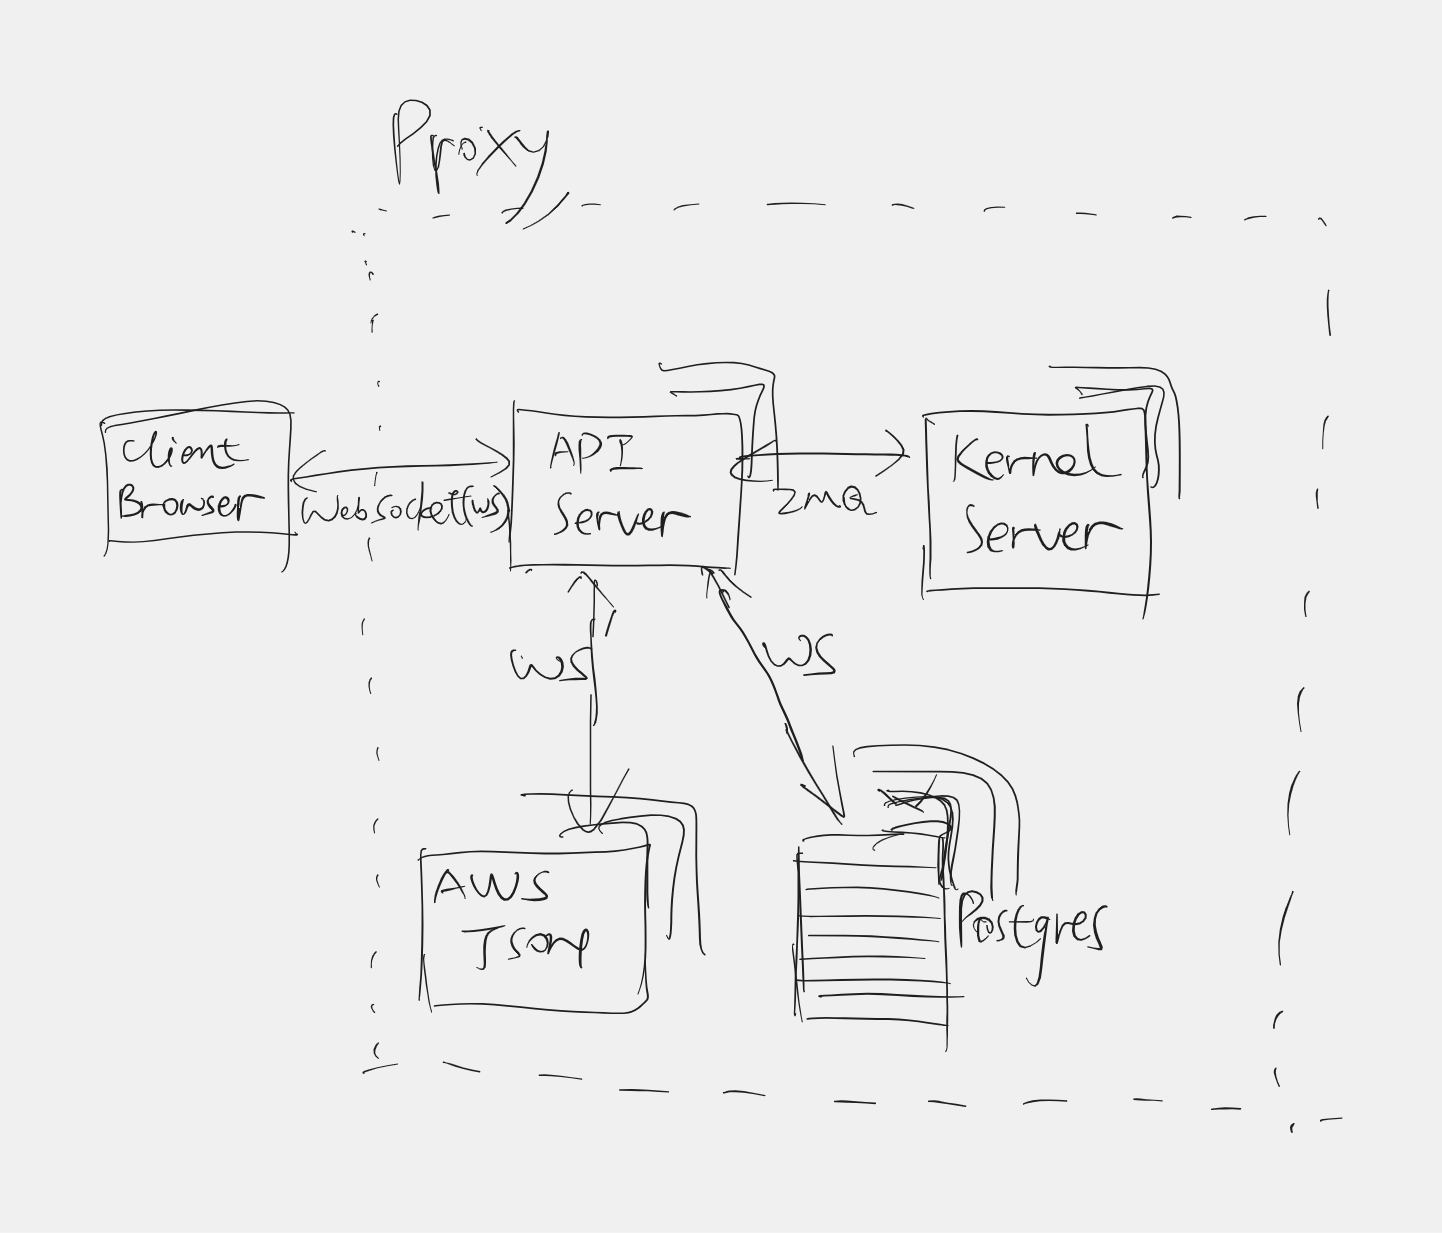 Proxy
Client
Browser
WebSocket(ws)
API
Server
ZMQ
Kernel
Server
WS
WS
AWS
Jsonp
Postgres